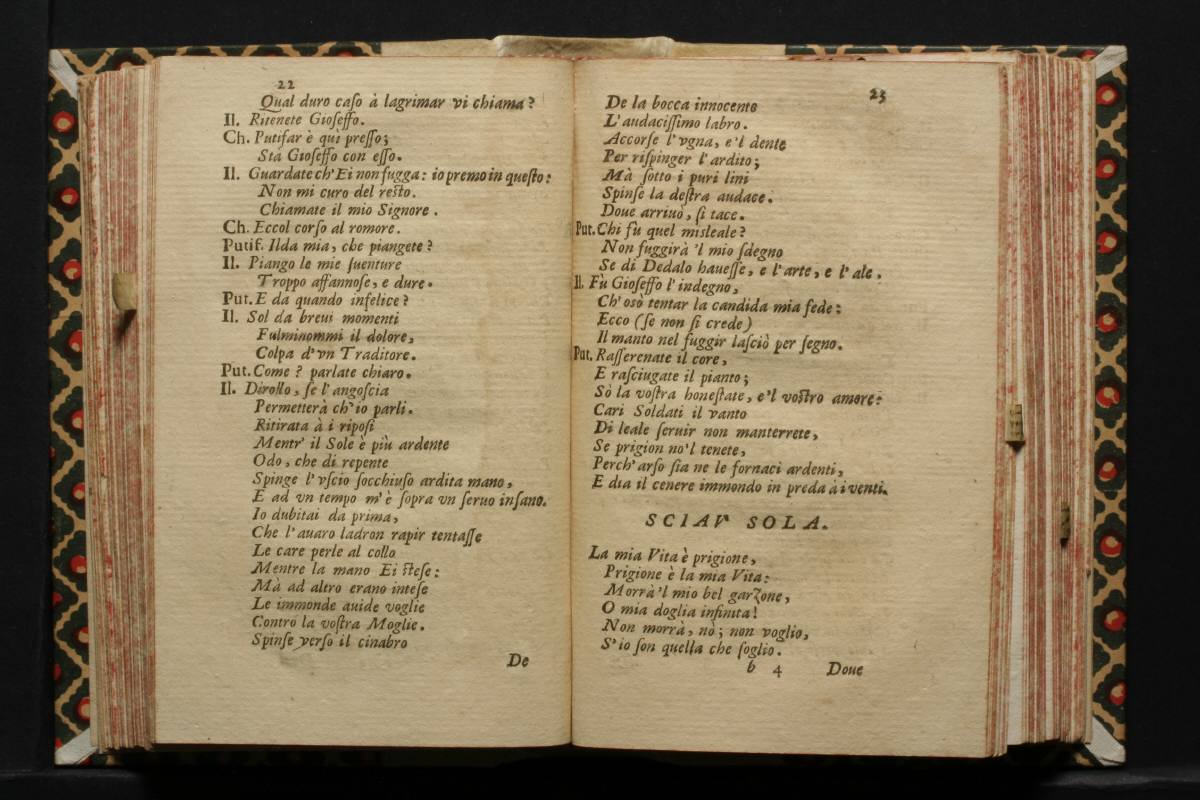 22
Qual duro caſo à lagrimar vi chiama?
Il. Ritenete Gioſeffo.
Ch. Putifar è quì preſſo;
Stà Gioſeffo con eſſo.
Il. Guardate ch'Ei non fugga: io premo in queſto:
Non mi curo del reſto.
Chiamate il mio Signore.
Ch. Eccol corſo al romore.
Putif. Ilda mia, che piangete?
Il. Piango le mie ſuenture
Troppo affannoſe, e dure.
Put. E da quando infelice?
Il. Sol da breui momenti
Fulminommi il dolore,
Colpa d'vn Traditore.
Put. Come? parlate chiaro.
Il. Dirollo, ſe l'angoſcia
Permetterà ch'io parli.
Ritirata à i ripoſi
Mentr' il Sole è più ardente
Odo, che di repente
Spinge l'vſcio ſocchiuſo ardita mano,
E ad vn tempo m'è ſopra vn ſeruo inſano.
Io dubitai da prima,
Che l'auaro ladron rapir tentaſſe
Le care perle al collo
Mentre la mano Ei ſteſe:
Mà ad altro erano inteſe
Le immonde auide voglie
Contro la voſtra Moglie.
Spinſe verſo il cinabro
De
23
De la bocca innocente
L'audaciſſimo labro.
Accorſe l'vgna, e'l dente
Per riſpinger l'ardito;
Mà ſotto i puri lini
Spinſe la deſtra audace.
Doue arriuò, ſi tace.
Put. Chi fù quel misleale?
Non fuggirà 'l mio ſdegno
Se di Dedalo haueſſe, e l'arte, e l'ale.
Il. Fù Gioſeffo l'indegno,
Ch'osò tentar la candida mia fede:
Ecco (ſe non ſi crede)
Il manto nel fuggir laſciò per ſegno.
Put. Raſſerenate il core,
E raſciugate il pianto;
Sò la voſtra honeſtate, e'l voſtro amore:
Cari Soldati il vanto
Di leale ſeruir non manterrete,
Se prigion no'l tenete,
Perch'arſo ſia ne le fornaci ardenti,
E dia il cenere immondo in preda à i venti.
SCIAV SOLA.
La mia Vita è prigione,
Prigione è la mia Vita:
Morrà'l mio bel garzone,
O mia doglia infinita!
Non morrà, nò; non voglio,
S'io ſon quella che ſoglio.
b 4 Doue